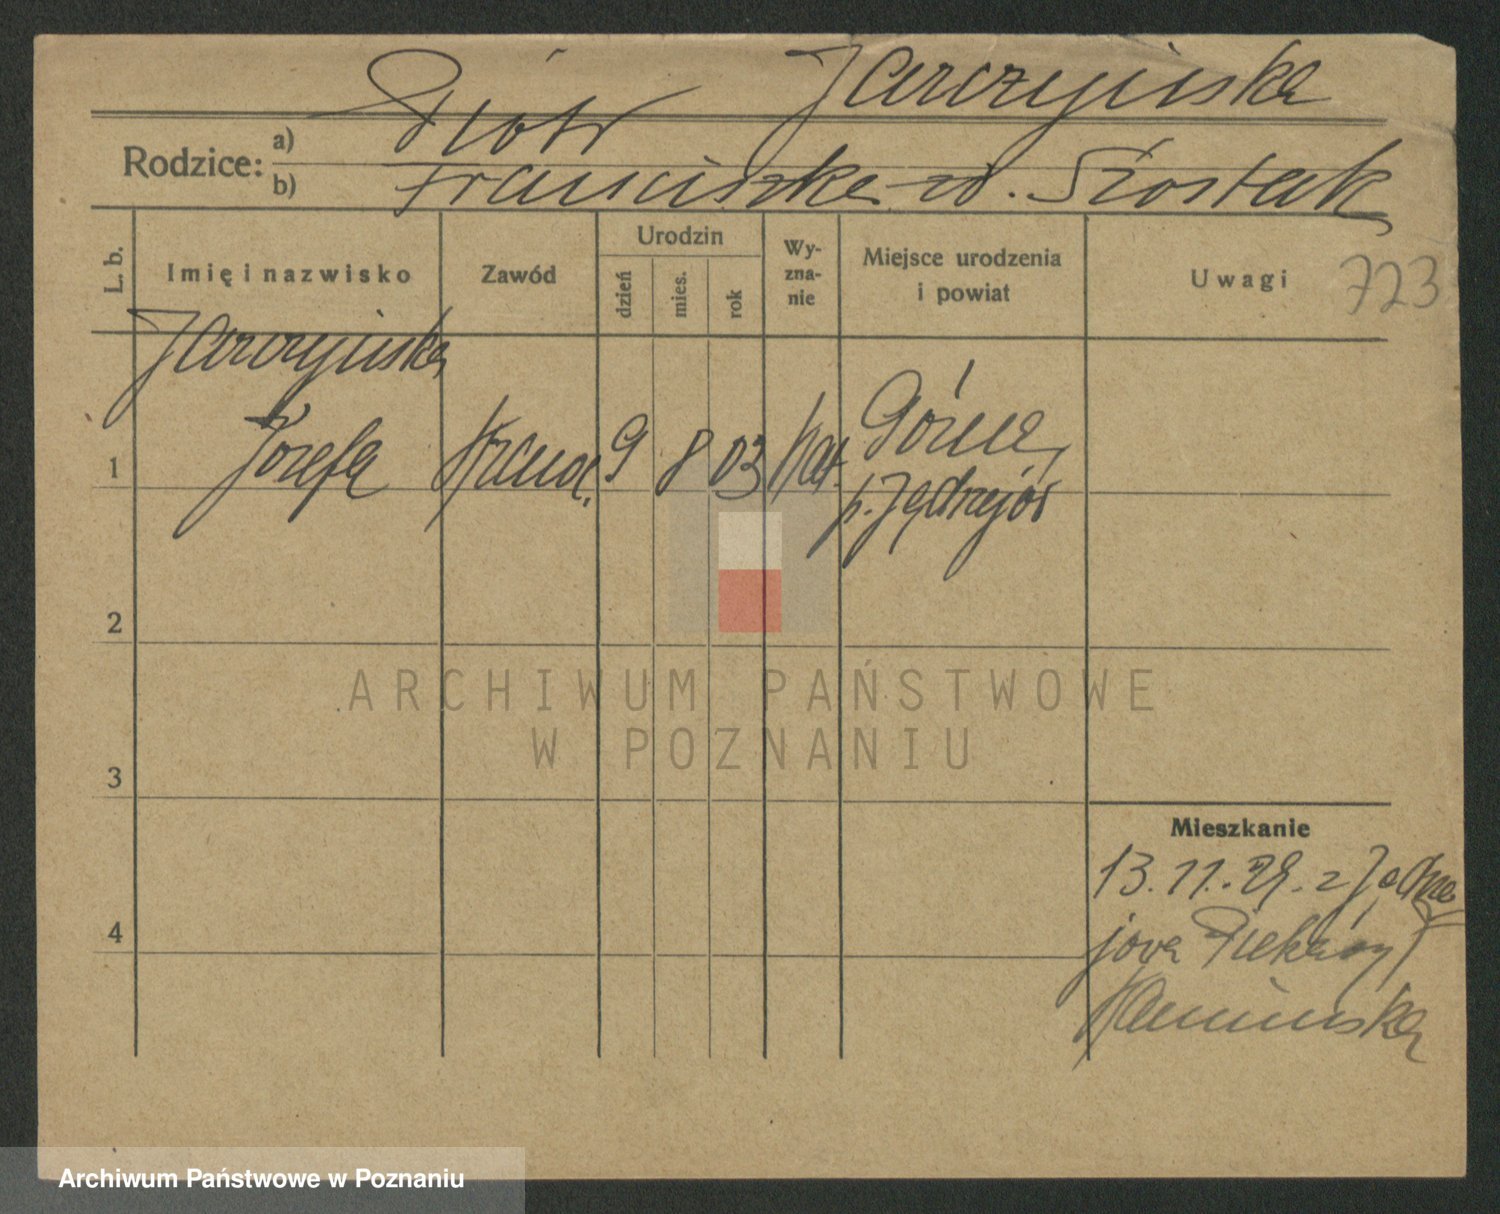 Jarczyńska
Rodzice: a) Piotr
b) Franciszka zd. Szostak
L. b.
Imię i nazwisko
Zawód
Urodzin
dzień
mies.
rok
Wy-
zna-
nie
Miejsce urodzenia
i powiat
Uwagi
723
Jarczyńska
1 Józefa 9 8 03 Kat. Górna
p. Jędrzejów
2
3
4
ARCHIWUM PAŃSTWOWE
W POZNANIU
Mieszkanie
13.11.29. z Jędrze
jowa Piekary
Kamińska
Archiwum Państwowe w Poznaniu